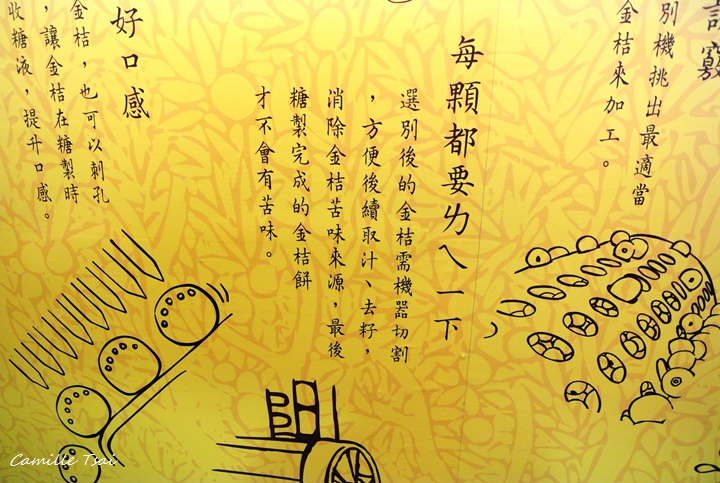 竅
別機挑出最適當
金桔來加工。
每顆都要ㄌㄟ一下
選別後的金桔需機器切割
，方便後續取汁、去籽，
消除金桔苦味來源，最後
糖製完成的金桔餅
才不會有苦味。
好口感
金桔，也可以刺孔
，讓金桔在糖製時
收糖液，提升口感。
Camille Tsai